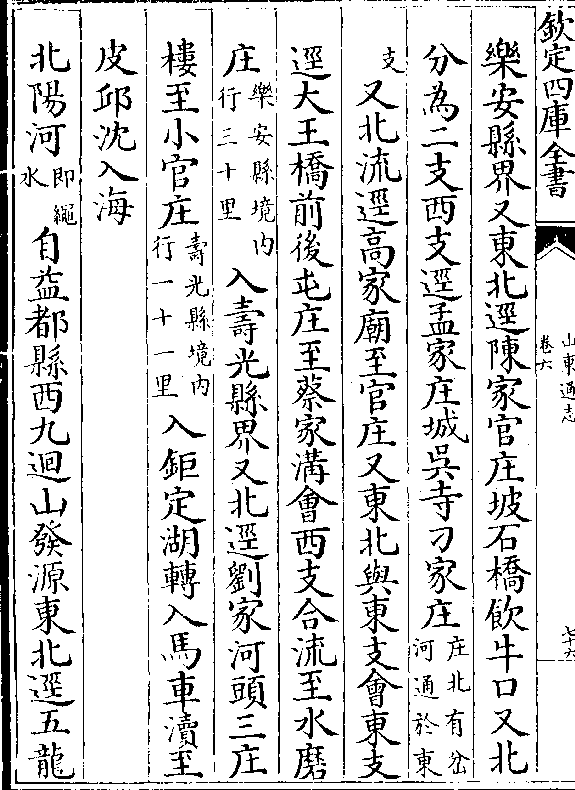 欽定四庫全書
山東通志
卷六
七十六
樂安縣界又東北逕陳家官庄坡石橋飲牛口又北
分為二支西支逕孟家庄城吳寺刁家庄庄北有岔河通於東
支又北流逕高家廟至官庄又東北與東支會東支
逕大王橋前後屯庄至蔡家溝會西支合流至水磨
庄樂安縣境内行三十里入壽光縣界又北逕劉家河頭三庄
樓至小官庄壽光縣境内行一十一里入鉅定湖轉入馬車瀆至
皮邱沈入海
北陽河即繩水自益都縣西九迴山發源東北逕五龍